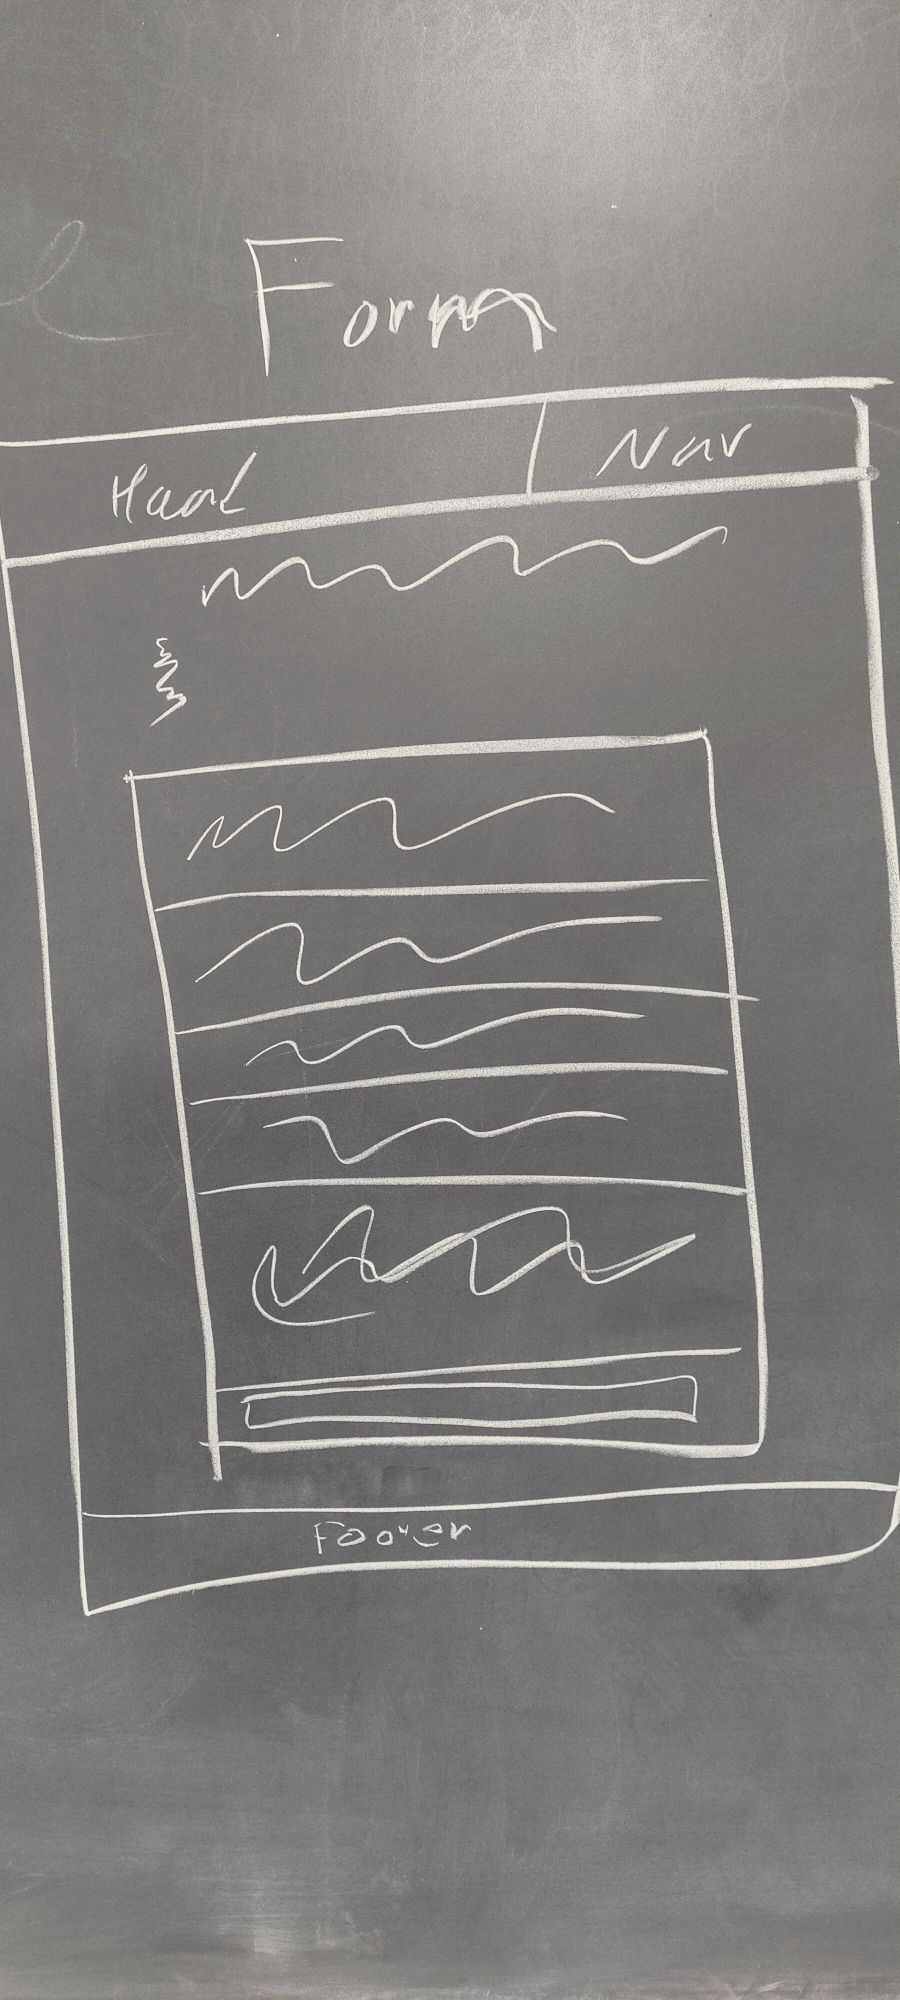 Form
Head Nav
Footer